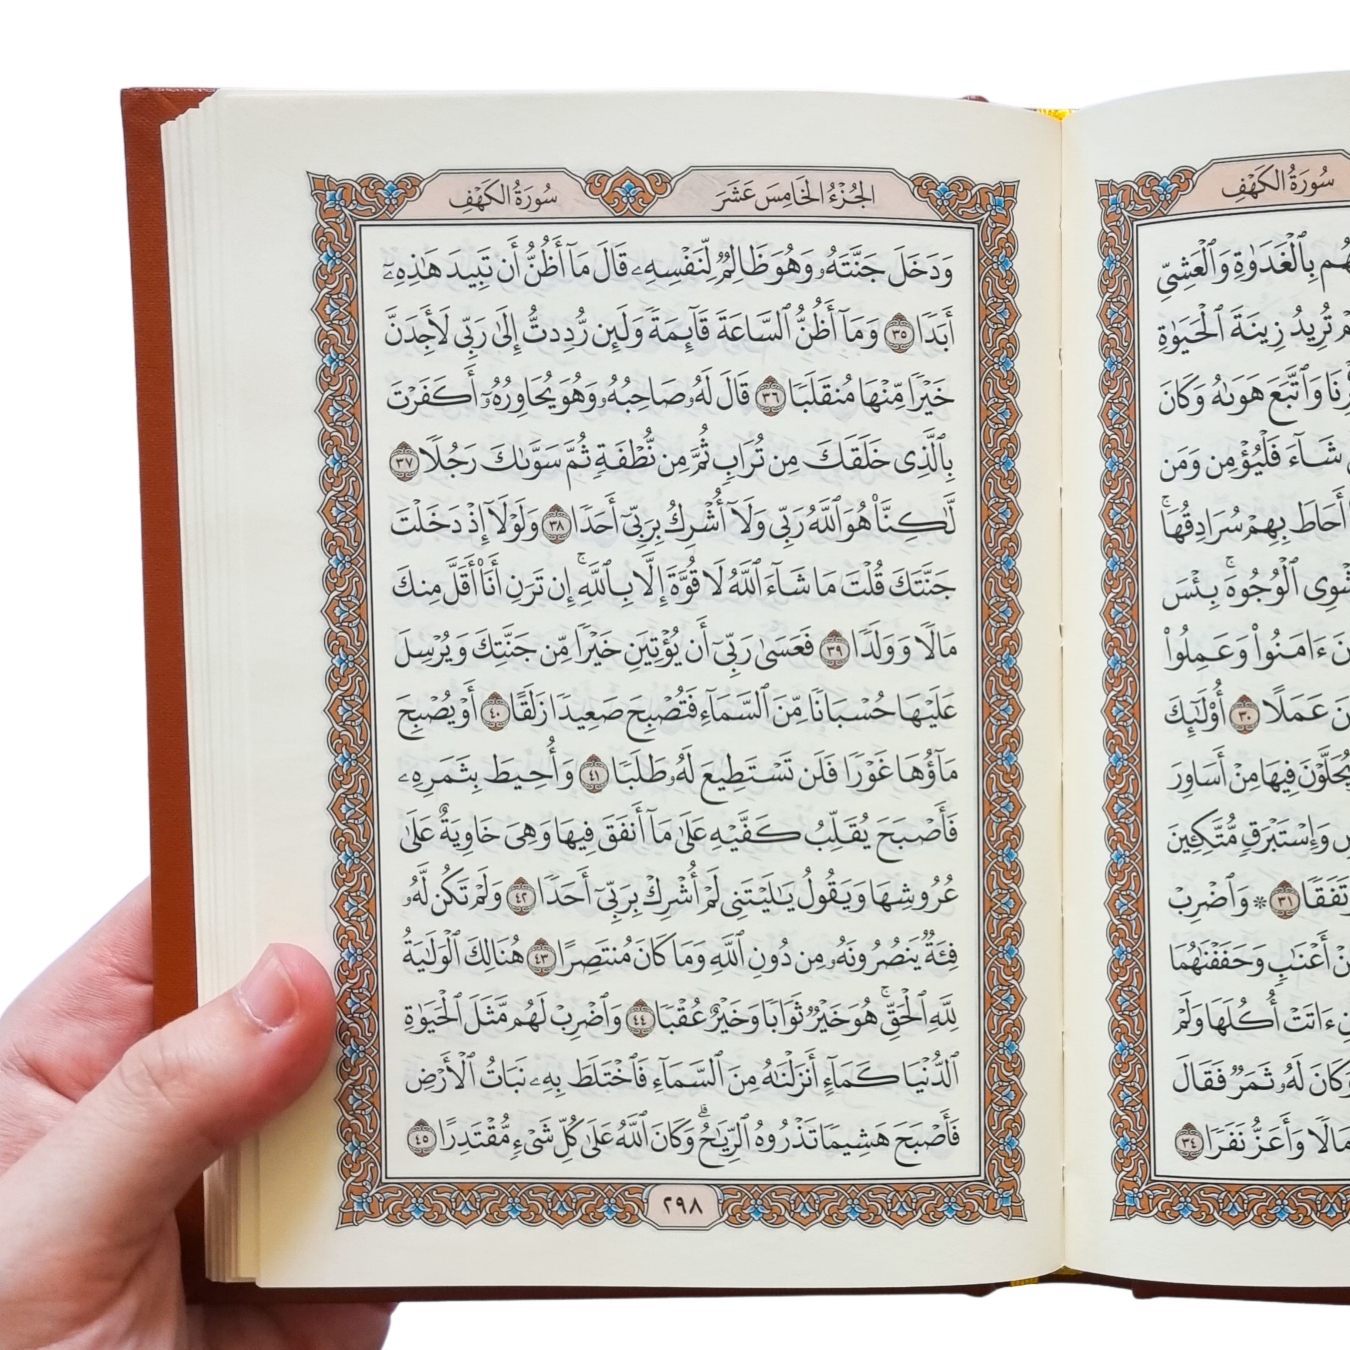 سُورَةُ الكَهْفِ
بِٱلْغَدَوٰةِ وَٱلْعَشِىِّ
تُرِيدُ زِينَةَ ٱلْحَيَوٰةِ
وَٱتَّبَعَ هَوَىٰهُ وَكَانَ
شَآءَ فَلْيُؤْمِن وَمَن
أَحَاطَ بِهِمْ سُرَادِقُهَاۚ
ٱلْوُجُوهَۚ بِئْسَ
ءَامَنُوا۟ وَعَمِلُوا۟
عَمَلًا ٣٠ أُو۟لَـٰٓئِكَ
يُحَلَّوْنَ فِيهَا مِنْ أَسَاوِرَ
وَإِسْتَبْرَقٍ مُّتَّكِـِٔينَ
٣١ * وَٱضْرِبْ
أَعْنَـٰبٍ وَحَفَفْنَـٰهُمَا
ءَاتَتْ أُكُلَهَا وَلَمْ
وَكَانَ لَهُۥ ثَمَرٌ فَقَالَ
مَالًا وَأَعَزُّ نَفَرًا ٣٤
الجُزْءُ الخَامِسَ عَشَرَ سُورَةُ الكَهْفِ
وَدَخَلَ جَنَّتَهُۥ وَهُوَ ظَالِمٌ لِّنَفْسِهِۦ قَالَ مَآ أَظُنُّ أَن تَبِيدَ هَـٰذِهِۦٓ
أَبَدًا ٣٥ وَمَآ أَظُنُّ ٱلسَّاعَةَ قَآئِمَةً وَلَئِن رُّدِدتُّ إِلَىٰ رَبِّى لَأَجِدَنَّ
خَيْرًا مِّنْهَا مُنقَلَبًا ٣٦ قَالَ لَهُۥ صَاحِبُهُۥ وَهُوَ يُحَاوِرُهُۥٓ أَكَفَرْتَ
بِٱلَّذِى خَلَقَكَ مِن تُرَابٍ ثُمَّ مِن نُّطْفَةٍ ثُمَّ سَوَّىٰكَ رَجُلًا ٣٧
لَّـٰكِنَّا۠ هُوَ ٱللَّهُ رَبِّى وَلَآ أُشْرِكُ بِرَبِّىٓ أَحَدًا ٣٨ وَلَوْلَآ إِذْ دَخَلْتَ
جَنَّتَكَ قُلْتَ مَا شَآءَ ٱللَّهُ لَا قُوَّةَ إِلَّا بِٱللَّهِۚ إِن تَرَنِ أَنَا۠ أَقَلَّ مِنكَ
مَالًا وَوَلَدًا ٣٩ فَعَسَىٰ رَبِّىٓ أَن يُؤْتِيَنِ خَيْرًا مِّن جَنَّتِكَ وَيُرْسِلَ
عَلَيْهَا حُسْبَانًا مِّنَ ٱلسَّمَآءِ فَتُصْبِحَ صَعِيدًا زَلَقًا ٤٠ أَوْ يُصْبِحَ
مَآؤُهَا غَوْرًا فَلَن تَسْتَطِيعَ لَهُۥ طَلَبًا ٤١ وَأُحِيطَ بِثَمَرِهِۦ
فَأَصْبَحَ يُقَلِّبُ كَفَّيْهِ عَلَىٰ مَآ أَنفَقَ فِيهَا وَهِىَ خَاوِيَةٌ عَلَىٰ
عُرُوشِهَا وَيَقُولُ يَـٰلَيْتَنِى لَمْ أُشْرِكْ بِرَبِّىٓ أَحَدًا ٤٢ وَلَمْ تَكُن لَّهُۥ
فِئَةٌ يَنصُرُونَهُۥ مِن دُونِ ٱللَّهِ وَمَا كَانَ مُنتَصِرًا ٤٣ هُنَالِكَ ٱلْوَلَـٰيَةُ
لِلَّهِ ٱلْحَقِّۚ هُوَ خَيْرٌ ثَوَابًا وَخَيْرٌ عُقْبًا ٤٤ وَٱضْرِبْ لَهُم مَّثَلَ ٱلْحَيَوٰةِ
ٱلدُّنْيَا كَمَآءٍ أَنزَلْنَـٰهُ مِنَ ٱلسَّمَآءِ فَٱخْتَلَطَ بِهِۦ نَبَاتُ ٱلْأَرْضِ
فَأَصْبَحَ هَشِيمًا تَذْرُوهُ ٱلرِّيَـٰحُۗ وَكَانَ ٱللَّهُ عَلَىٰ كُلِّ شَىْءٍ مُّقْتَدِرًا ٤٥
٢٩٨